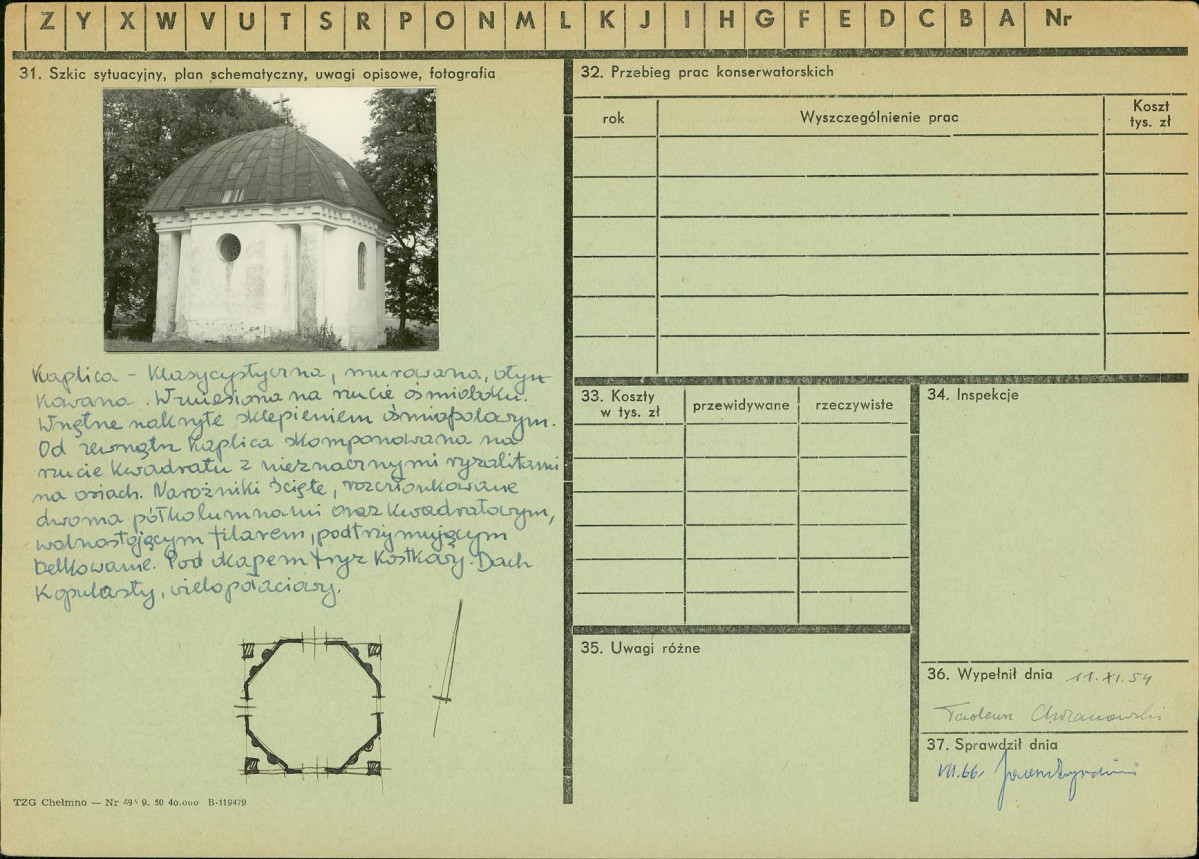 Z Y X W V U T S R P O N M L K J I H G F E D C B A Nr
31. Szkic sytuacyjny, plan schematyczny, uwagi opisowe, fotografia
Kaplica – Klasycystyczna, murowana, otyn
kowana. Wzniesiona na rzucie ośmioboku.
Wnętrze nakryte sklepieniem ośmiopolowym.
Od zewnątrz kaplica skomponowana na
rzucie kwadratu z nieznacznymi ryzalitami
na osiach. Narożniki ścięte, rozczłonkowane
dwoma półkolumnami oraz kwadratowym,
wolnostojącym filarem, podtrzymującym
belkowanie. Pod okapem fryz kostkowy. Dach
kopulasty, wielopołaciowy.
TZG Chełmno — Nr 9. 50 40.000 B-119479
32. Przebieg prac konserwatorskich
rok
Wyszczególnienie prac
Koszt
tys. zł
33. Koszty
w tys. zł
przewidywane
rzeczywiste
34. Inspekcje
35. Uwagi różne
36. Wypełnił dnia 11.XI.54
Tadeusz Chrzanowski
37. Sprawdził dnia
VII.66.